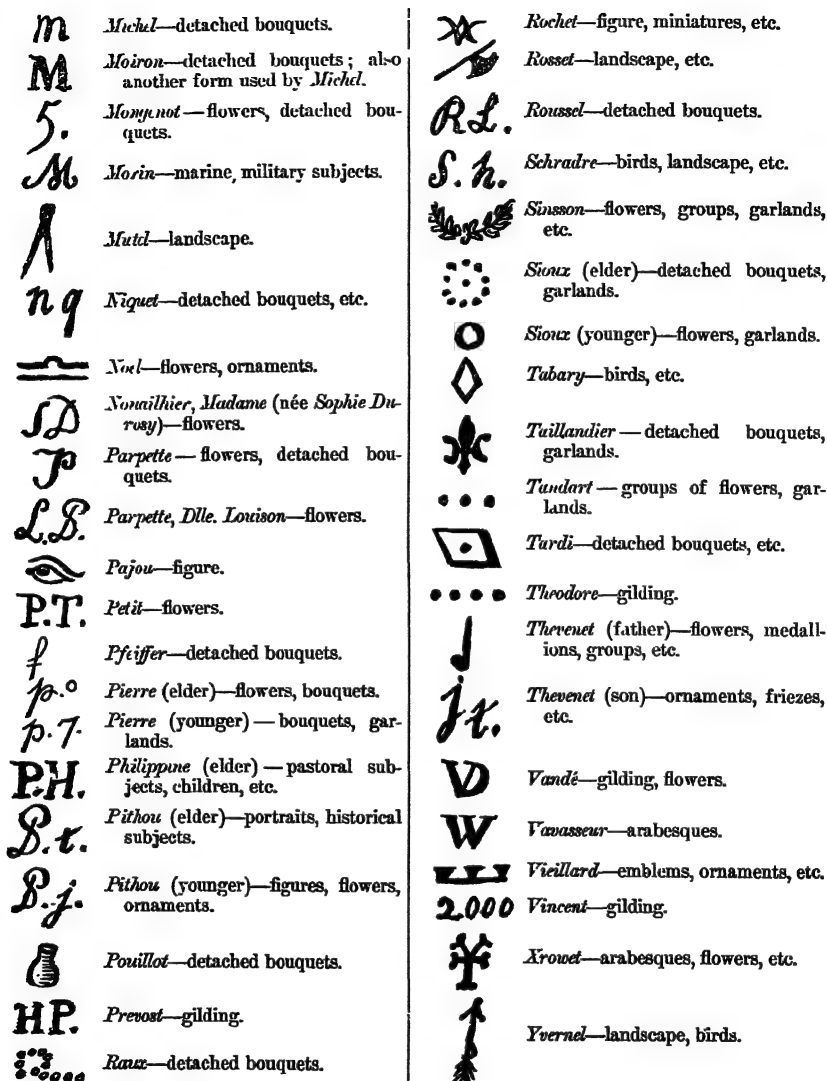 m Michel—detached bouquets.
M Moiron—detached bouquets; also
another form used by Michel.
5. Mongenot—flowers, detached bou-
quets.
M Morin—marine, military subjects.
Mutel—landscape.
n q Niquet—detached bouquets, etc.
Noel—flowers, ornaments.
SD Nouailhier, Madame (née Sophie Du-
rosy)—flowers.
P Parpette—flowers, detached bou-
quets.
L.P. Parpette, Dlle. Louison—flowers.
Pajou—figure.
P.T. Petit—flowers.
f Pfeiffer—detached bouquets.
p.o Pierre (elder)—flowers, bouquets.
p.7. Pierre (younger)—bouquets, gar-
lands.
P.H. Philippine (elder)—pastoral sub-
jects, children, etc.
P.t. Pithou (elder)—portraits, historical
subjects.
P.j. Pithou (younger)—figures, flowers,
ornaments.
Pouillot—detached bouquets.
HP. Prevost—gilding.
Raux—detached bouquets.
Rochet—figure, miniatures, etc.
Rosset—landscape, etc.
RL. Roussel—detached bouquets.
S.h. Schradre—birds, landscape, etc.
Sinsson—flowers, groups, garlands,
etc.
Sioux (elder)—detached bouquets,
garlands.
Sioux (younger)—flowers, garlands.
Tabary—birds, etc.
Taillandier—detached bouquets,
garlands.
Tandart—groups of flowers, gar-
lands.
Tardi—detached bouquets, etc.
Theodore—gilding.
Thevenet (father)—flowers, medall-
ions, groups, etc.
jt. Thevenet (son)—ornaments, friezes,
etc.
VD Vandé—gilding, flowers.
W Vavasseur—arabesques.
Vieillard—emblems, ornaments, etc.
2.000 Vincent—gilding.
Xrowet—arabesques, flowers, etc.
Yvernel—landscape, birds.